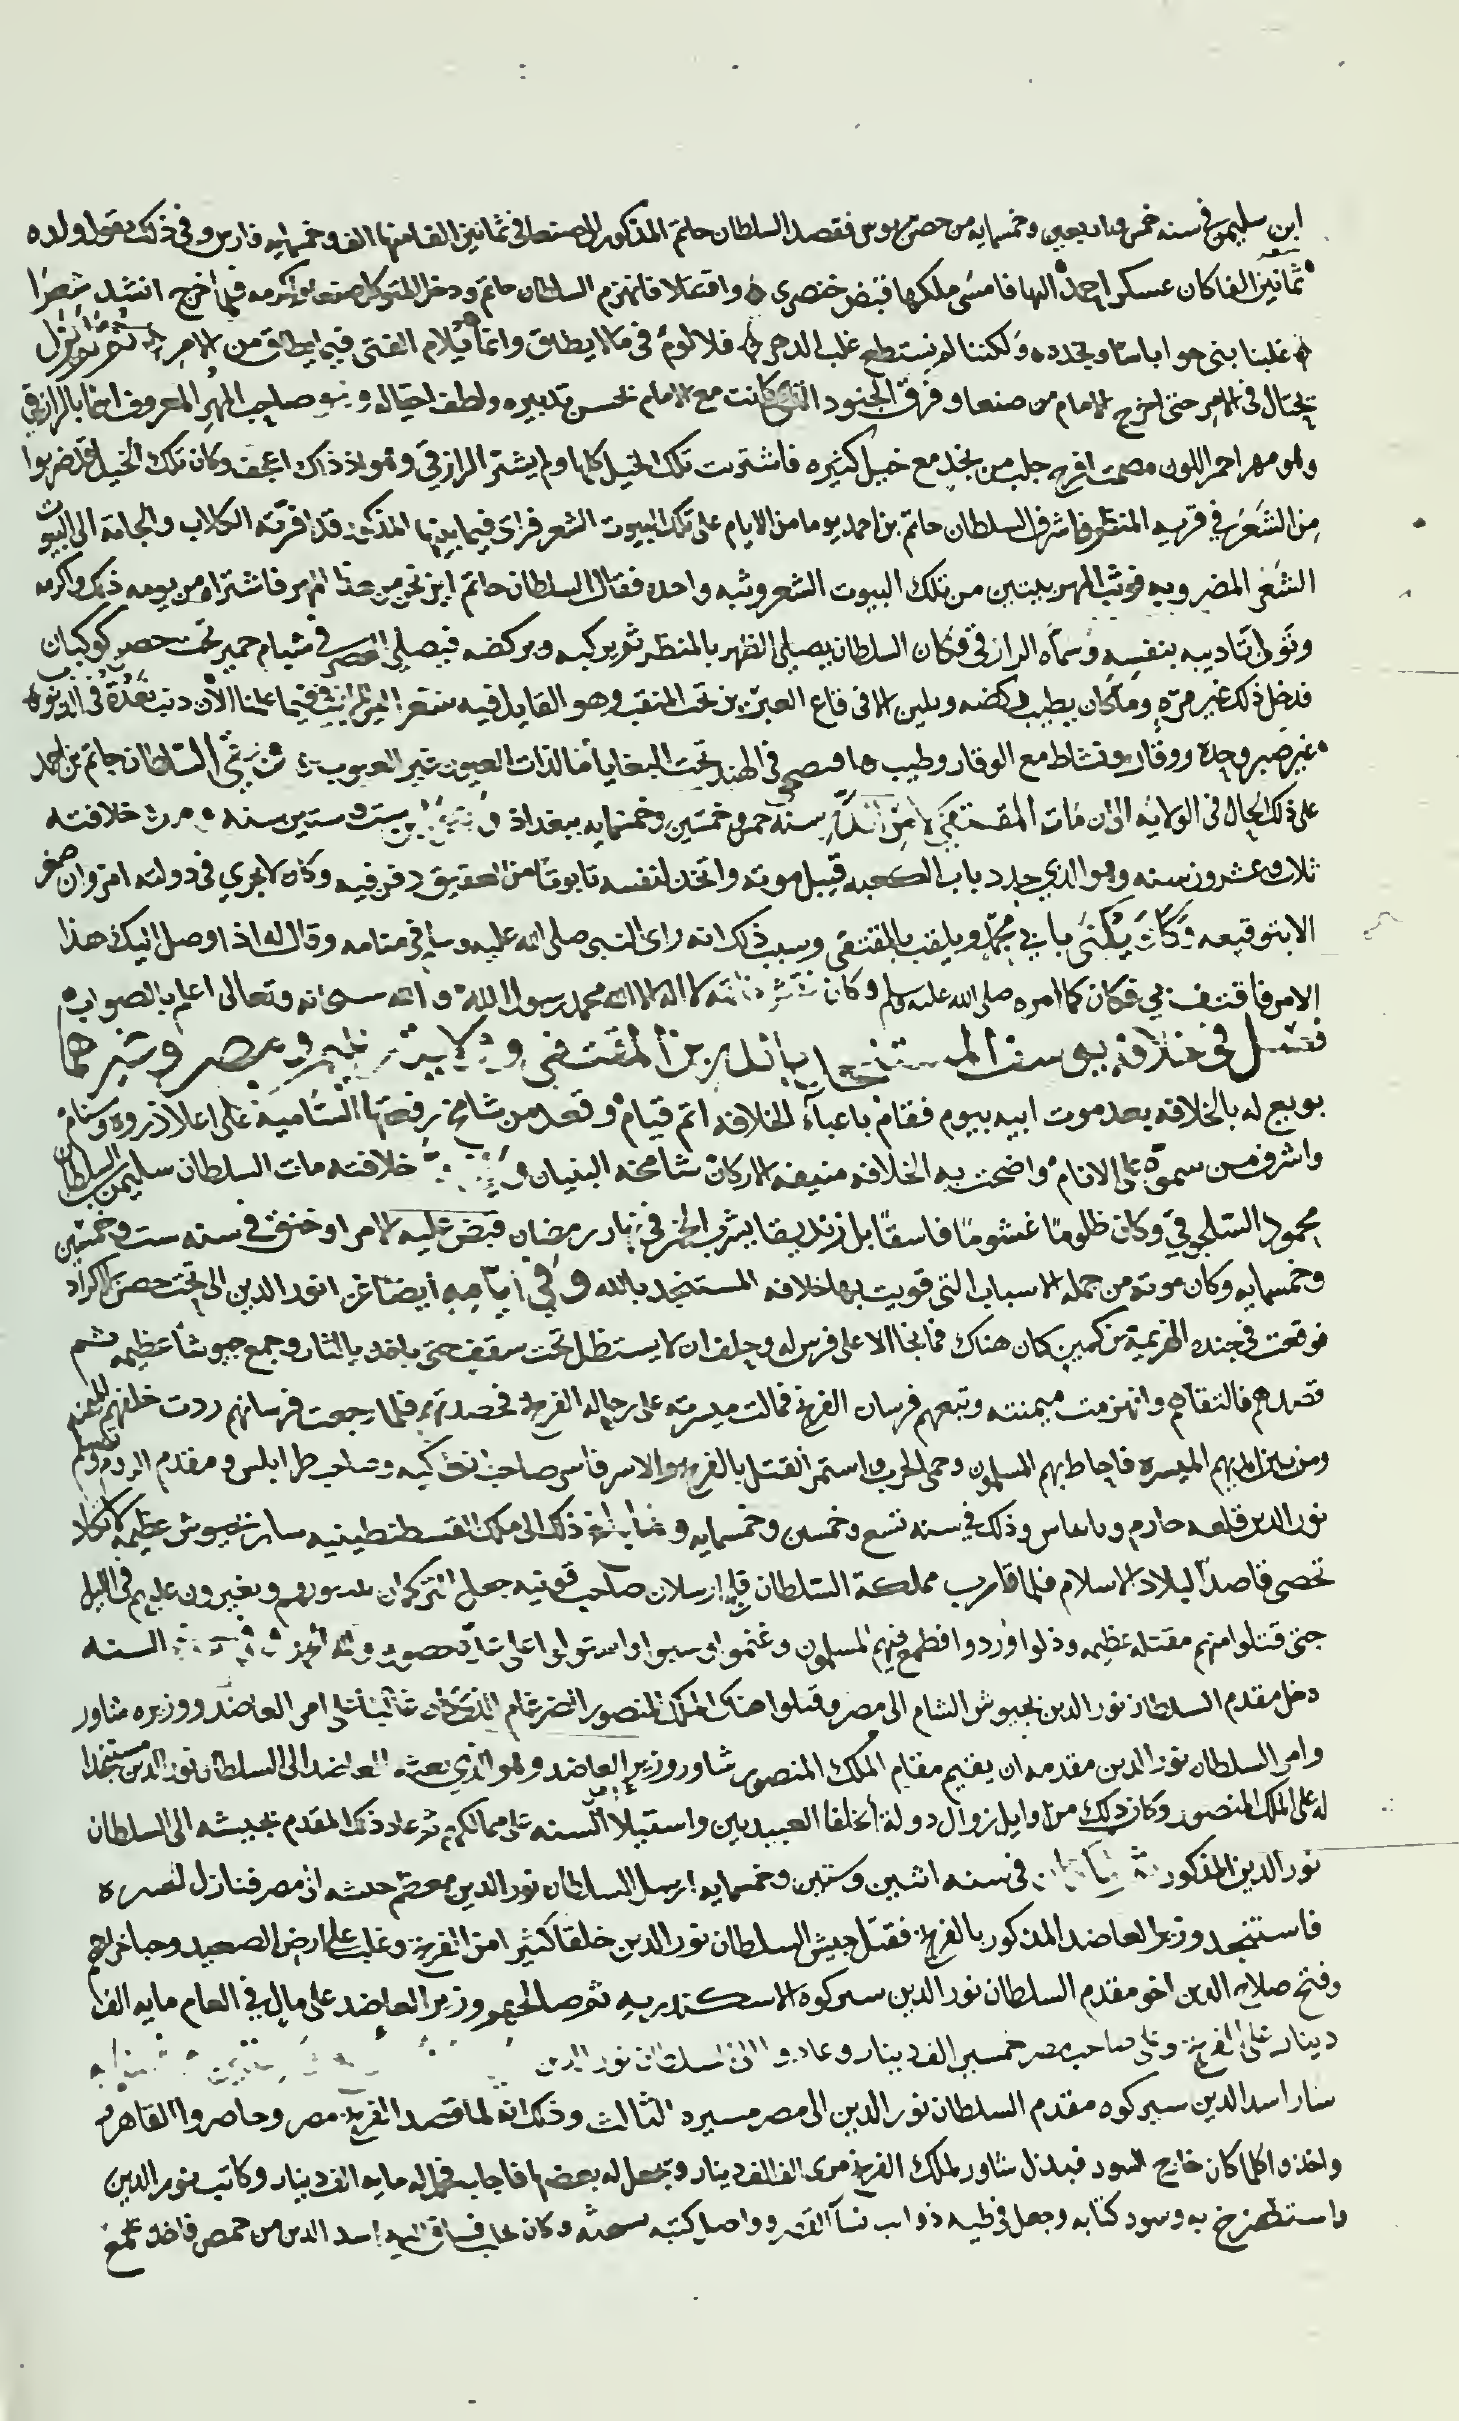 ابن سليمن في سنه خمس واربعين وخمسمايه من حصن هوس فقصد السلطان حاتم المذكور الى صنعا في ثمانين الفا منها الف وخمسمايه فارس وفي ذلك يقول ولده
ثمانين الفا كان عسكر احمد اليها فامسى ملكها قبض خنصري واقتتلا فانهزم السلطان حاتم ودخل المتوكل صنعا واكرمه فلما خرج انشد شعرا
غلبنا بني حوا باسا ونجده ولكننا لم نستطع غلب الدهر فلا لوم في ما لا يطاق وانما يلام الفتى فيما يطاق من الامر ثم لم يزل
يحتال في الامر حتى اخرج الامام من صنعا وفرق الجنود التي كانت مع الامام بحسن تدبيره ولطف احتياله وهو صاحب المهر المعروف ايضا بالرازقي
وهو مهر احمر اللون مصمت اقرح جلب من نجد مع خيل كثيره فاشتريت تلك الخيل كلها ولم يشتر الرازقي وهو اذ ذاك اعجف وكان تلك الخيل قد ضربوا
من الشعر في قريه المنظر فاشرف السلطان حاتم بن احمد يوما من الايام على تلك البيوت الشعر فراى فيما بينها المذكور قد افرقته الكلاب والجاته الى البيوت
الشعر المضروبه فوثب المهر بيتين من تلك البيوت الشعر وثبه واحده فقال السلطان حاتم اين نحن من هذا المهر فاشتراه من يومه ذلك واكرمه
وتولى تاديبه بنفسه وسماه الرازقي فكان السلطان يصلي الظهر بالمنظر ثم يركبه ويركضه فيصلي العصر في شبام حمير تحت حصن كوكبان
فدخل ذلك غير مره وما كان يطيب ركضه ويلين الا في قاع
غير صبر وحده ووقار ونشاط مع الوقار وطيب
على ذلك الحال في الولايه الى ان مات المقتفي لامر الله سنه خمس وخمسين وخمسمايه ببغداد ست وستين سنه خلافته
ثلاث وعشرون سنه وهو الذي جدد باب الكعبه قبيل موته واتخذ لنفسه تابوتا من العقيق دفن فيه وكان لا يجري في دولته امر وان صغر
الا بتوقيعه وكان يكنى بابي محمد ويلقب بالمقتفي وسبب ذلك انه راى النبي صلى الله عليه وسلم في منامه وقال له اذا وصل اليك هذا
الامر فاقتف بي فكان كما امره صلى الله عليه وسلم وكان لا اله الا الله محمد رسول الله والله سبحانه وتعالى اعلم بالصواب
فصل في خلافه يوسف المستنجد بالله بن المقتفي ومصر وغيرهما
بويع له بالخلافه بعد موت ابيه بيوم فقام باعباء الخلافه اتم قيام وقعد من شامخ رفعتها الساميه على اعلا ذروه وسنام
واشرف من سموه على الانام واضحت به الخلافه منيفه الاركان شامخه البنيان خلافته مات السلطان سليمن بن السلطان
محمود السلجوقي وكان ظلوما غشوما فاسقا بل زنديقا يشرب الخمر في نهار رمضان قبض عليه الامرا وخنق في سنه ست وخمسين
وخمسمايه وكان موته من جمله الاسباب التي قويت بها خلافه المستنجد بالله وفي ايامه ايضا غزا نور الدين الى تحت حصن الاكراد
فوقعت في جنده الهزيمه من كمين كان هناك فما نجا الا على فرس له وحلف ان لا يستظل تحت سقف حتى ياخذ بالثار وجمع جيوشا عظيمه ثم
قصدهم فالتقاهم وانهزمت ميمنته وتبعهم فرسان الفرنج فمالت ميسرته على رجاله الفرنج فحصدتهم فلما رجعت فرسانهم ردت خلفهم الميمنه
ومن بين ايديهم الميسره فاحاط بهم المسلمون وحمي الحرب واستمر القتل بالفرنج والاسر فاسر صاحب انطاكيه وصاحب طرابلس ومقدم الروم وتسلم
نور الدين قلعه حارم وبانياس وذلك في سنه تسع وخمسين وخمسمايه ولما بلغ ذلك الى ملك القسطنطينيه سار بجيوش عظيمه لا تكاد
تحصى قاصدا لبلاد الاسلام فلما قارب مملكة السلطان قلج ارسلان صاحب قونيه جعل التركمان ويغيرون عليهم في الليل
حتى قتلوا منهم مقتله عظيمه وذلوا وردوا فطمع فيهم المسلمون وغنموا وسبوا واستولوا على حصون السنه
دخل مقدم السلطان نور الدين بجيوش الشام الى مصر وقتلوا هناك الملك المنصور الضرغام على امر العاضد ووزيره شاور
وامر السلطان نور الدين مقدمه ان يقيم مقام الملك المنصور شاور وزير العاضد وهو الذي بعثه العاضد الى السلطان نور الدين مستنجدا
له على الملك المنصور وكان ذلك من اوايل زوال دولة الخلفا العبيديين واستيلا السنه على ممالكهم ثم عاد ذلك المقدم بجيشه الى السلطان
نور الدين المذكور في سنه اثنين وستين وخمسمايه ارسل السلطان نور الدين معظم جيشه الى مصر فنازل
فاستنجد وزير العاضد المذكور بالفرنج فقتل جيش السلطان نور الدين خلقا كثيرا من الفرنج وغلب على ارض الصعيد وجبا خراجه
وفتح صلاح الدين اخو مقدم السلطان نور الدين سيركوه الاسكندريه ثم صالحهم وزير العاضد على مال في العام مايه الف
دينار على الفرنج وعلى صاحب مصر خمسين الف دينار وعادوا الى السلطان نور الدين
سار اسد الدين سيركوه مقدم السلطان نور الدين الى مصر مسيره الثالث وذلك انه لما قصد الفرنج مصر وحاصروا القاهره
واخذوا كلما كان خارج السور فبذل شاور لملك الفرنج مري الف الف دينار وتعجل له بعضها فاجابه فحمل له مايه الف دينار وكاتب نور الدين
واستصرخ به وسود كتابه وجعل في طيه ذوايب نسا القصر وواصل كتبه وكان بحلب فساق اليه اسد الدين من حمص فاخذ يجمع